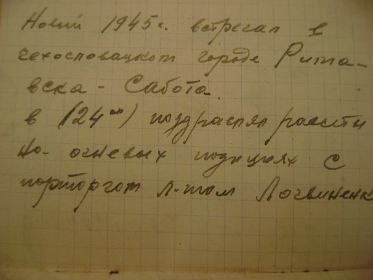 Новый 1945г. встречал в
чехословацком городе Рима-
вска - Сабота.
в (24 00) поздравлял расчёты
на огневых позициях с
парторгом л-том Логвиненк